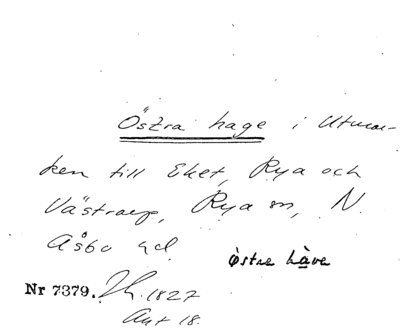 Östra hage i Utmar-
ken till Eket, Rya och
Västraup, Rya sn, N.
Åsbo hd.
östre hàve
Nr 7379. Zh. 1827
Akt 18.